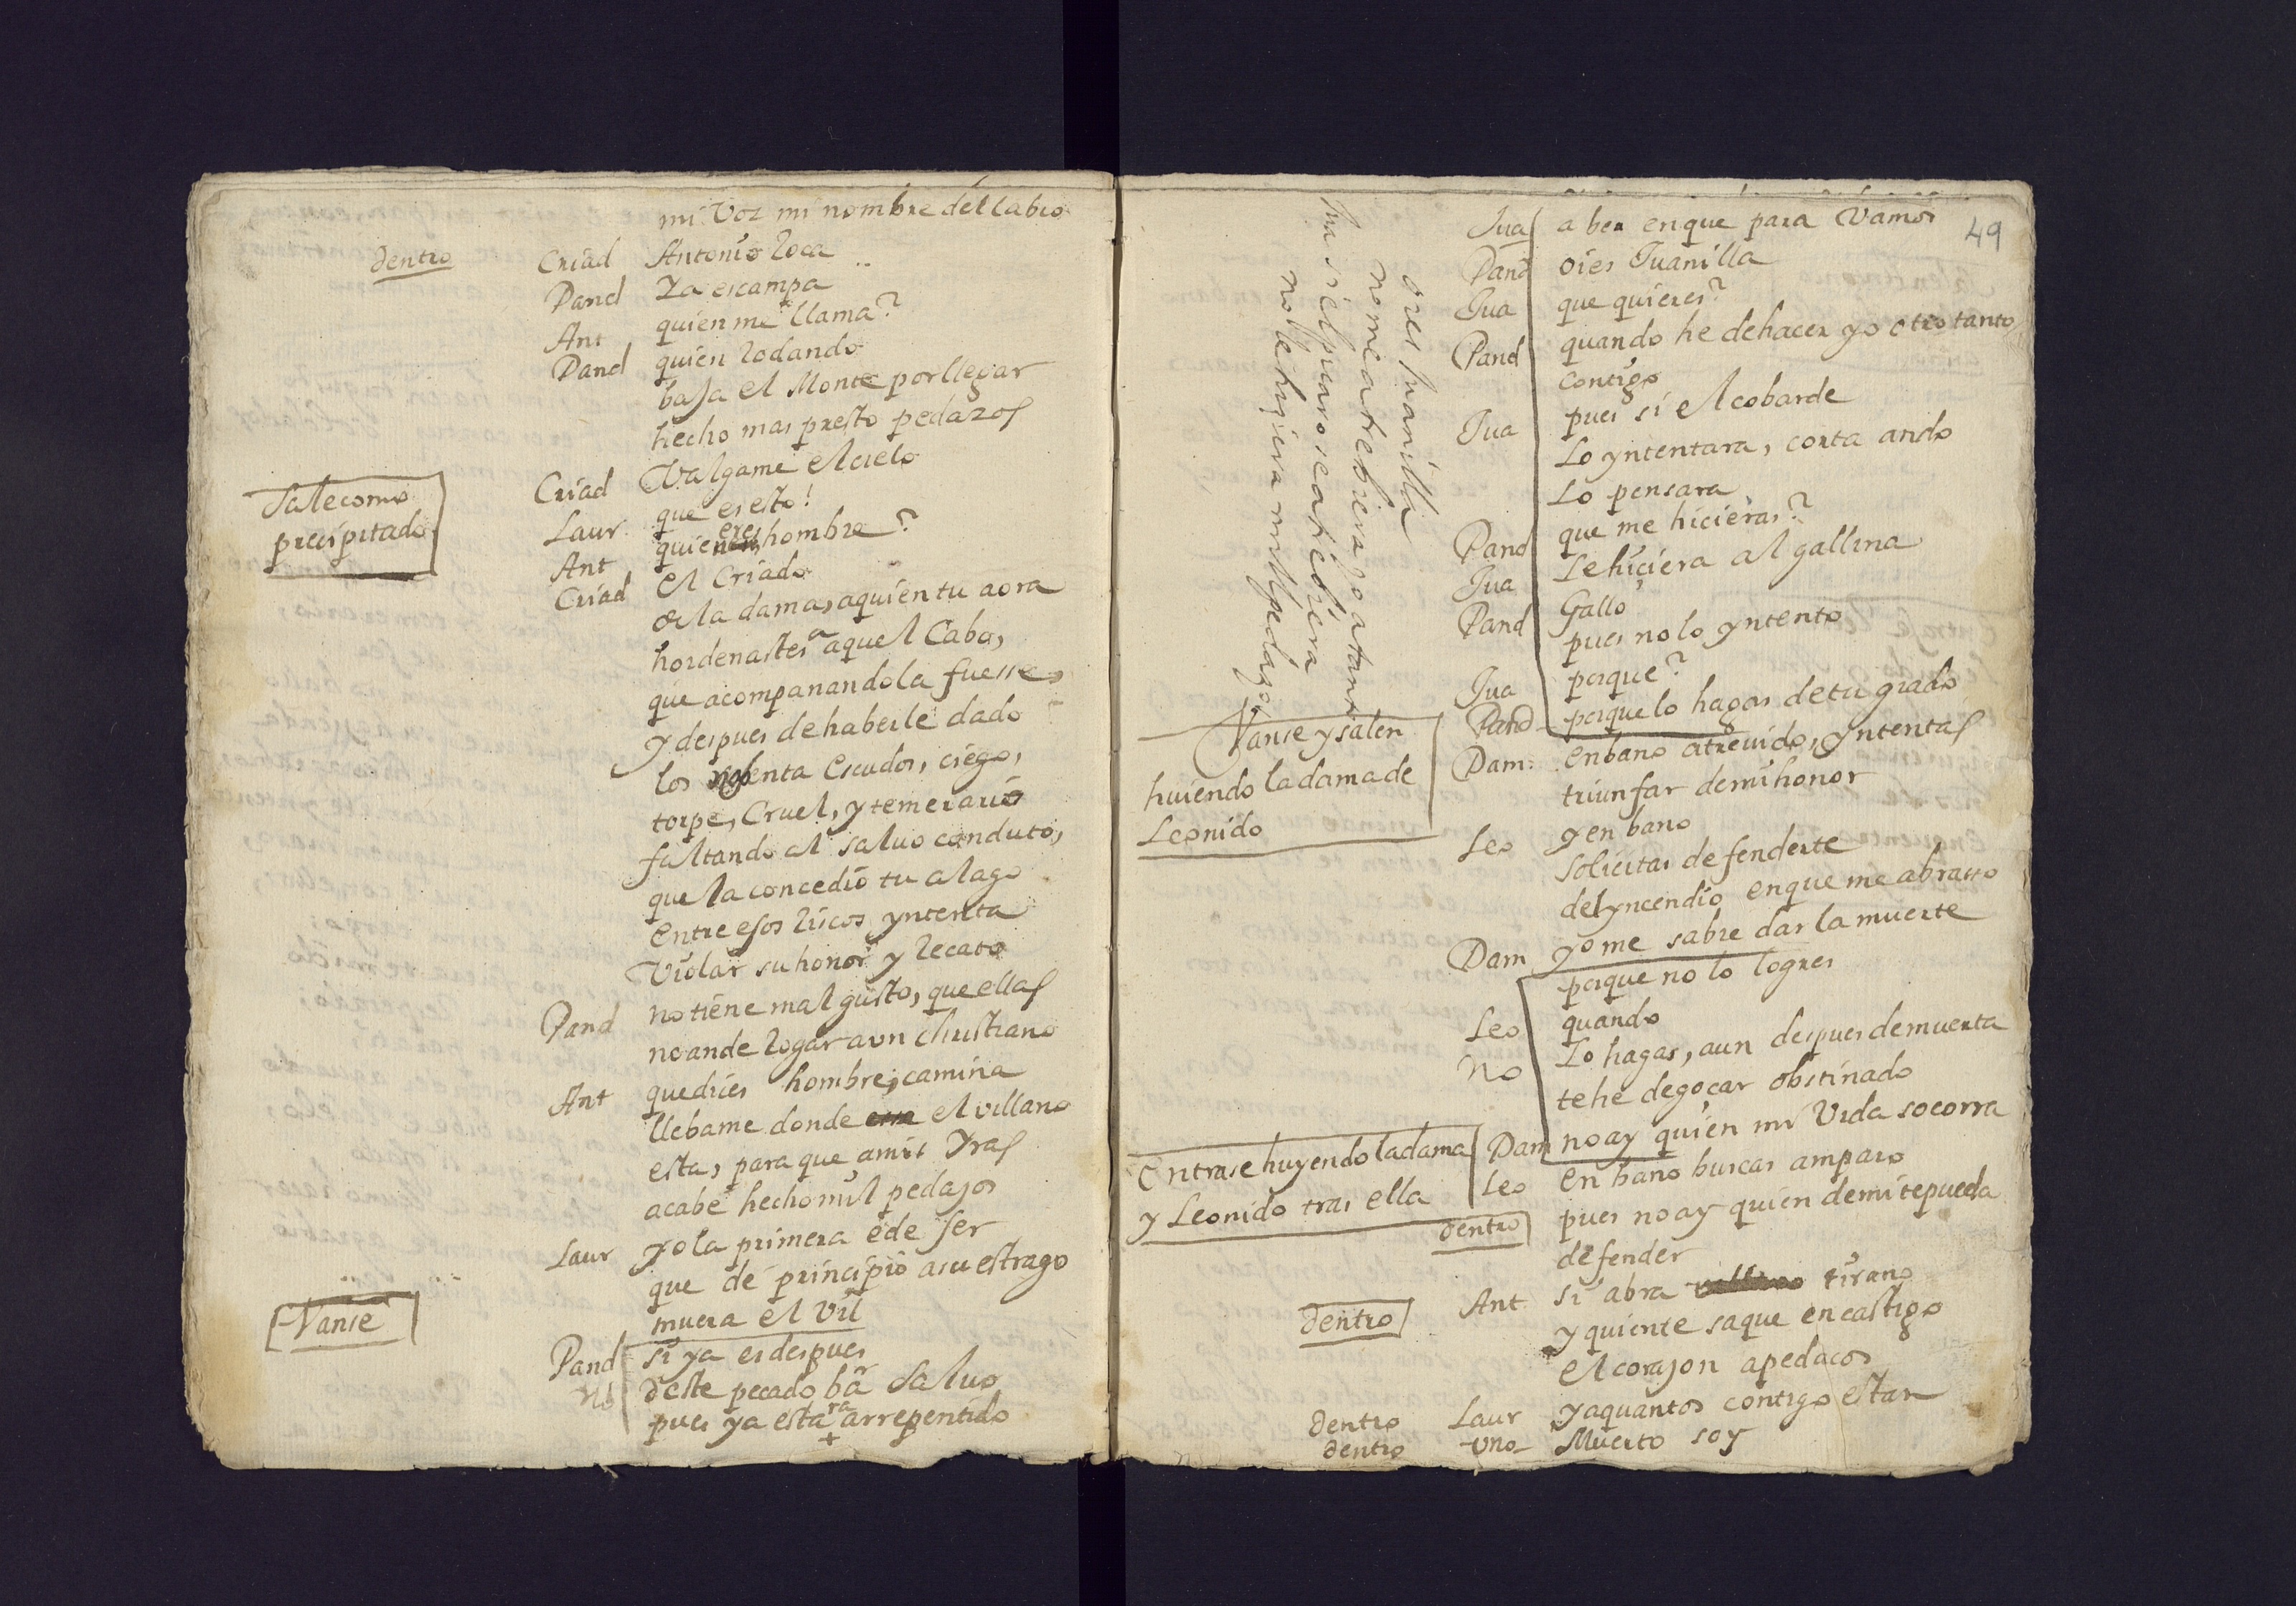 mi Voz mi nombre del labio
dentro Criad Antonio Roca
Pand Ya escampa
Ant quien me llama?
Pand quien rodando
baja el Monte por llegar
hecho mas presto pedazos
Criad Valgame el cielo
Sale como
precipitado
Laur que es esto!
Ant quien eres hombre?
Criad el Criado
de la dama, a quien tu aora
hordenastes a aquel Cabo,
que acompanandola fuesse,
y despues de haberle dado
los nobenta Escudos, ciego,
torpe, Cruel, y temerario
faltando al salvo conduto,
que la concedio tu alago
Entre esos riscos yntenta
Violar su honor y recato
Pand no tiene mal gusto, que ellas
no ande rogar a un christiano
Ant que dices hombre, camina
llebame donde el villano
esta, para que a mis Yras
acabe hecho mil pedasos
Laur yo la primera e de ser
que de principio a su estrago
muera el vil
Vanse
Pand si ya es despues
no deste pecado bar Salvo
pues ya estara arrepentido
+
49
Jua a ber en que para Vamos
Pand oies Juanilla
Jua que quieres?
Pand quando he de hacer yo otro tanto
contigo
Jua pues si el cobarde
Lo yntentara, corta ando
Lo pensara
Pand que me hicieras?
Jua Le hiciera al gallina
Gallo
Pand pues no lo yntento
Jua porque?
Pand porque lo hagas de tu grado
oies Juanilla
no me atrebiera yo a tanto
Jua si el puerco se atrebiera
no le hiciera mil pedazos
Vanse y salen
huiendo la dama de
Leonido
Dam: en bano atrevido, yntentas
triunfar de mi honor
Leo y en bano
solicitas defenderte
del yncendio en que me abrasso
Dam yo me sabre dar la muerte
porque no lo logres
Leo quando
no Lo hagas, aun despues de muerta
te he de goçar obstinado
Dam no ay quien mi Vida socorra
Entrase huyendo la dama
y Leonido tras ella
Leo en bano buscas amparo
dentro pues no ay quien de mi te pueda
defender
dentro Ant si abra tirano
y quien te saque en castigo
el corason a pedacos
dentro Laur y a quantos contigo estan
dentro Uno Muerto soy